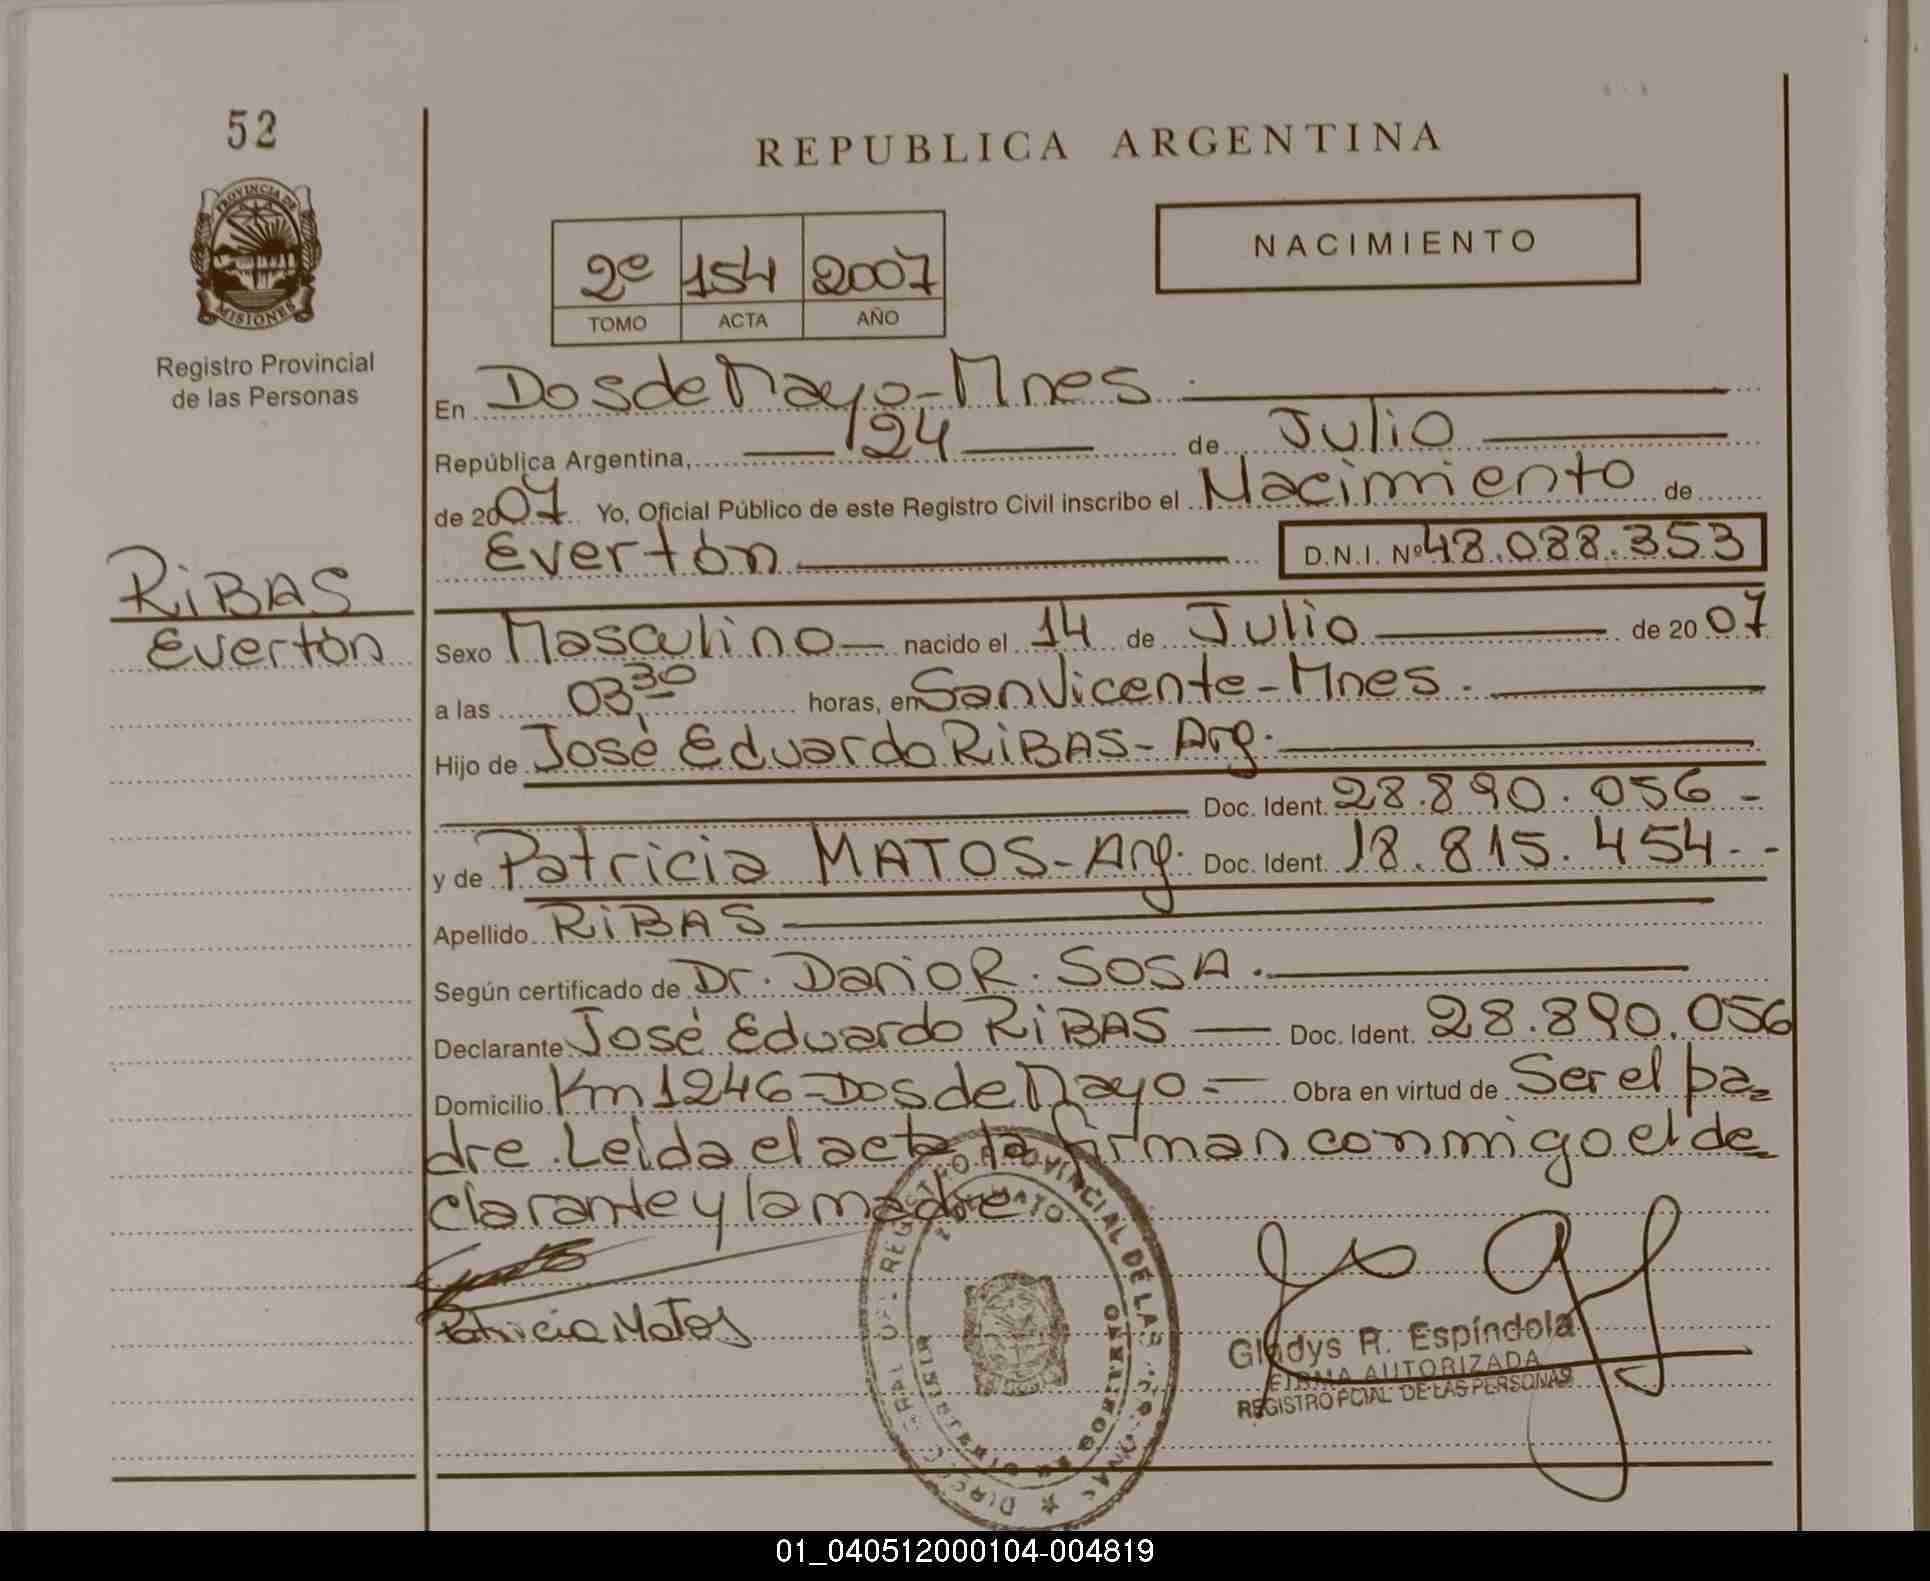 52
REPUBLICA ARGENTINA
PROVINCIA DE
MISIONES
NACIMIENTO
2º 154 2007
TOMO ACTA AÑO
Registro Provincial
de las Personas
En Dos de Mayo-Mnes.
República Argentina, 24 de Julio
de 2007 Yo, Oficial Público de este Registro Civil inscribo el Nacimiento de
Everton D.N.I. Nº 48.088.353
RiBAS
Everton
Sexo Masculino nacido el 14 de Julio de 2007
a las 03,30 horas, en San Vicente-Mnes.
Hijo de José Eduardo RiBAS-Arg.
Doc. Ident. 28.890.056-
y de Patricia MATOS-Arg. Doc. Ident. 18.815.454--
Apellido RiBAS
Según certificado de Dr. Dario R. SOSA.
Declarante José Eduardo RiBAS Doc. Ident. 28.890.056
Domicilio Km 1246-Dos de Mayo- Obra en virtud de Ser el pa-
dre. Leida el acta la firman conmigo el de-
clarante y la madre
Patricia Matos
REGISTRO PROVINCIAL DE LAS
Gladys R. Espíndola
FIRMA AUTORIZADA
REGISTRO PCIAL. DE LAS PERSONAS
01_040512000104-004819